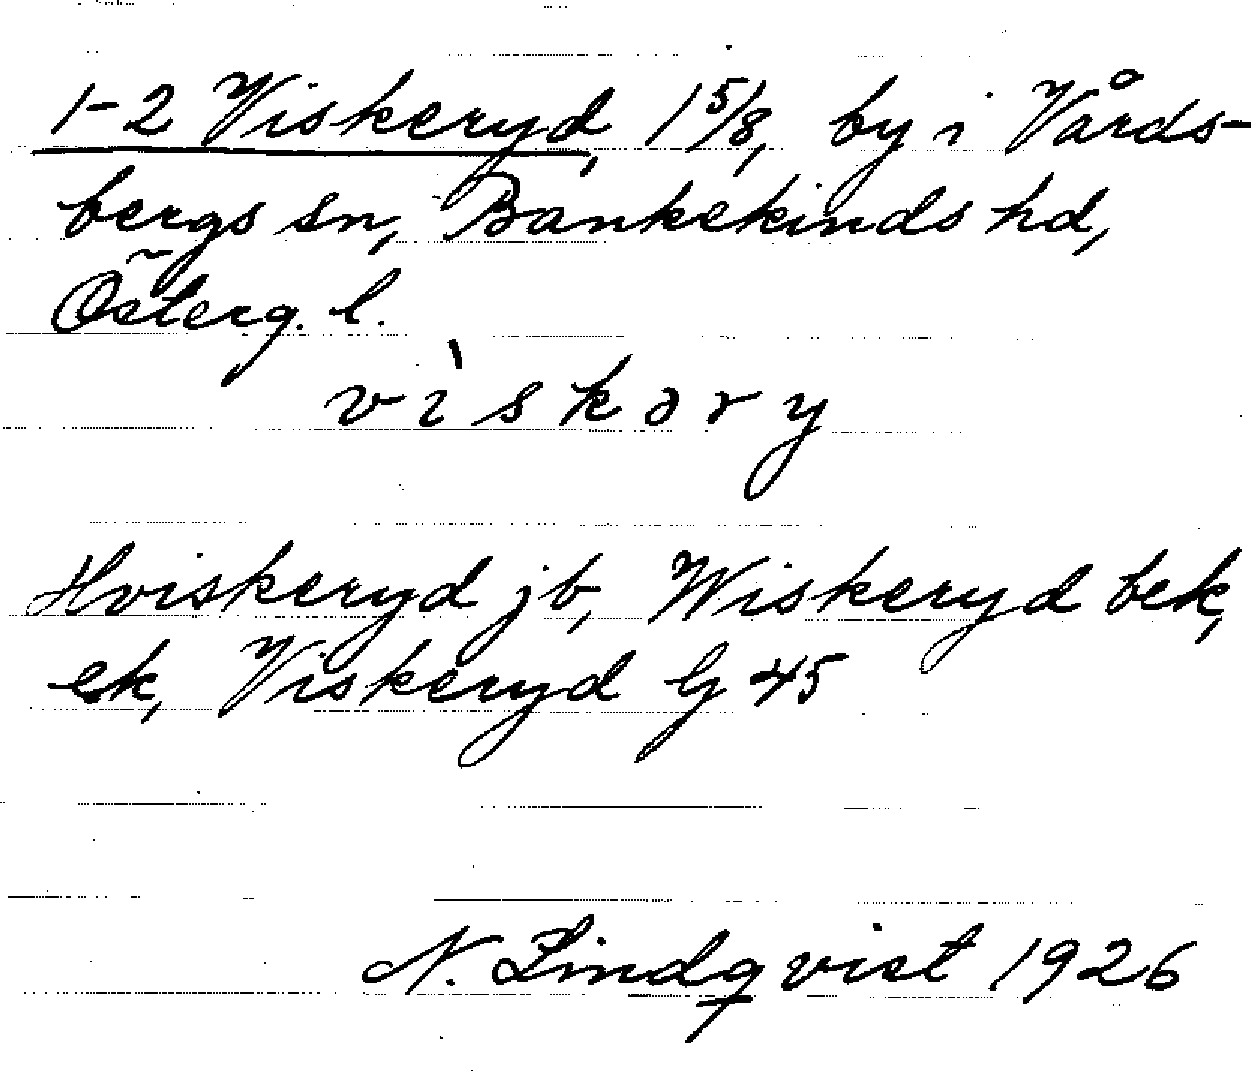 1-2 Viskeryd, 1 5/8, by i Vårds-
bergs sn, Bankekinds hd,
Österg. l.
vìskəry
Hviskeryd jb, Wiskeryd bek,
ek, Viskeryd G 45
N. Lindqvist 1926